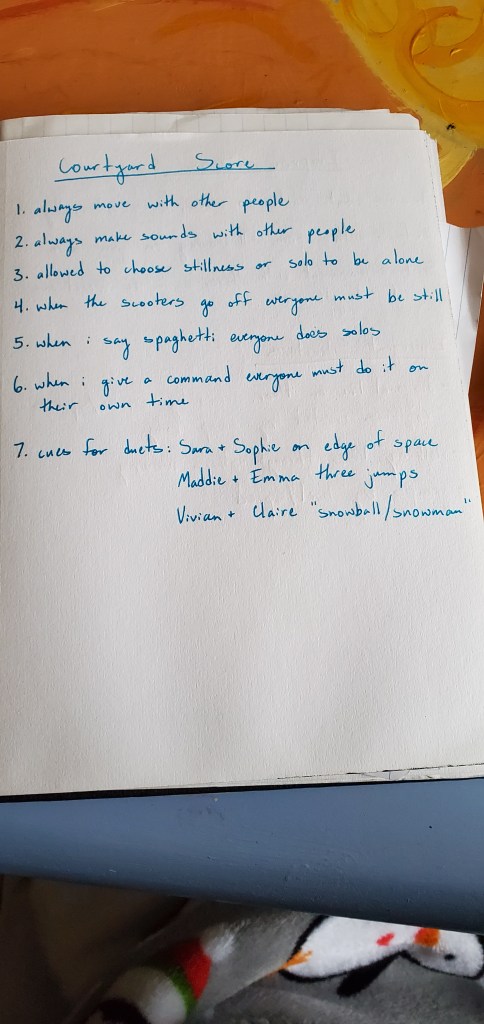 Courtyard Score
1. always move with other people
2. always make sounds with other people
3. allowed to choose stillness or solo to be alone
4. when the scooters go off everyone must be still
5. when i say spaghetti everyone does solos
6. when i give a command everyone must do it on
their own time
7. cues for duets: Sara + Sophie on edge of space
Maddie + Emma three jumps
Vivian + Claire "snowball/snowman"